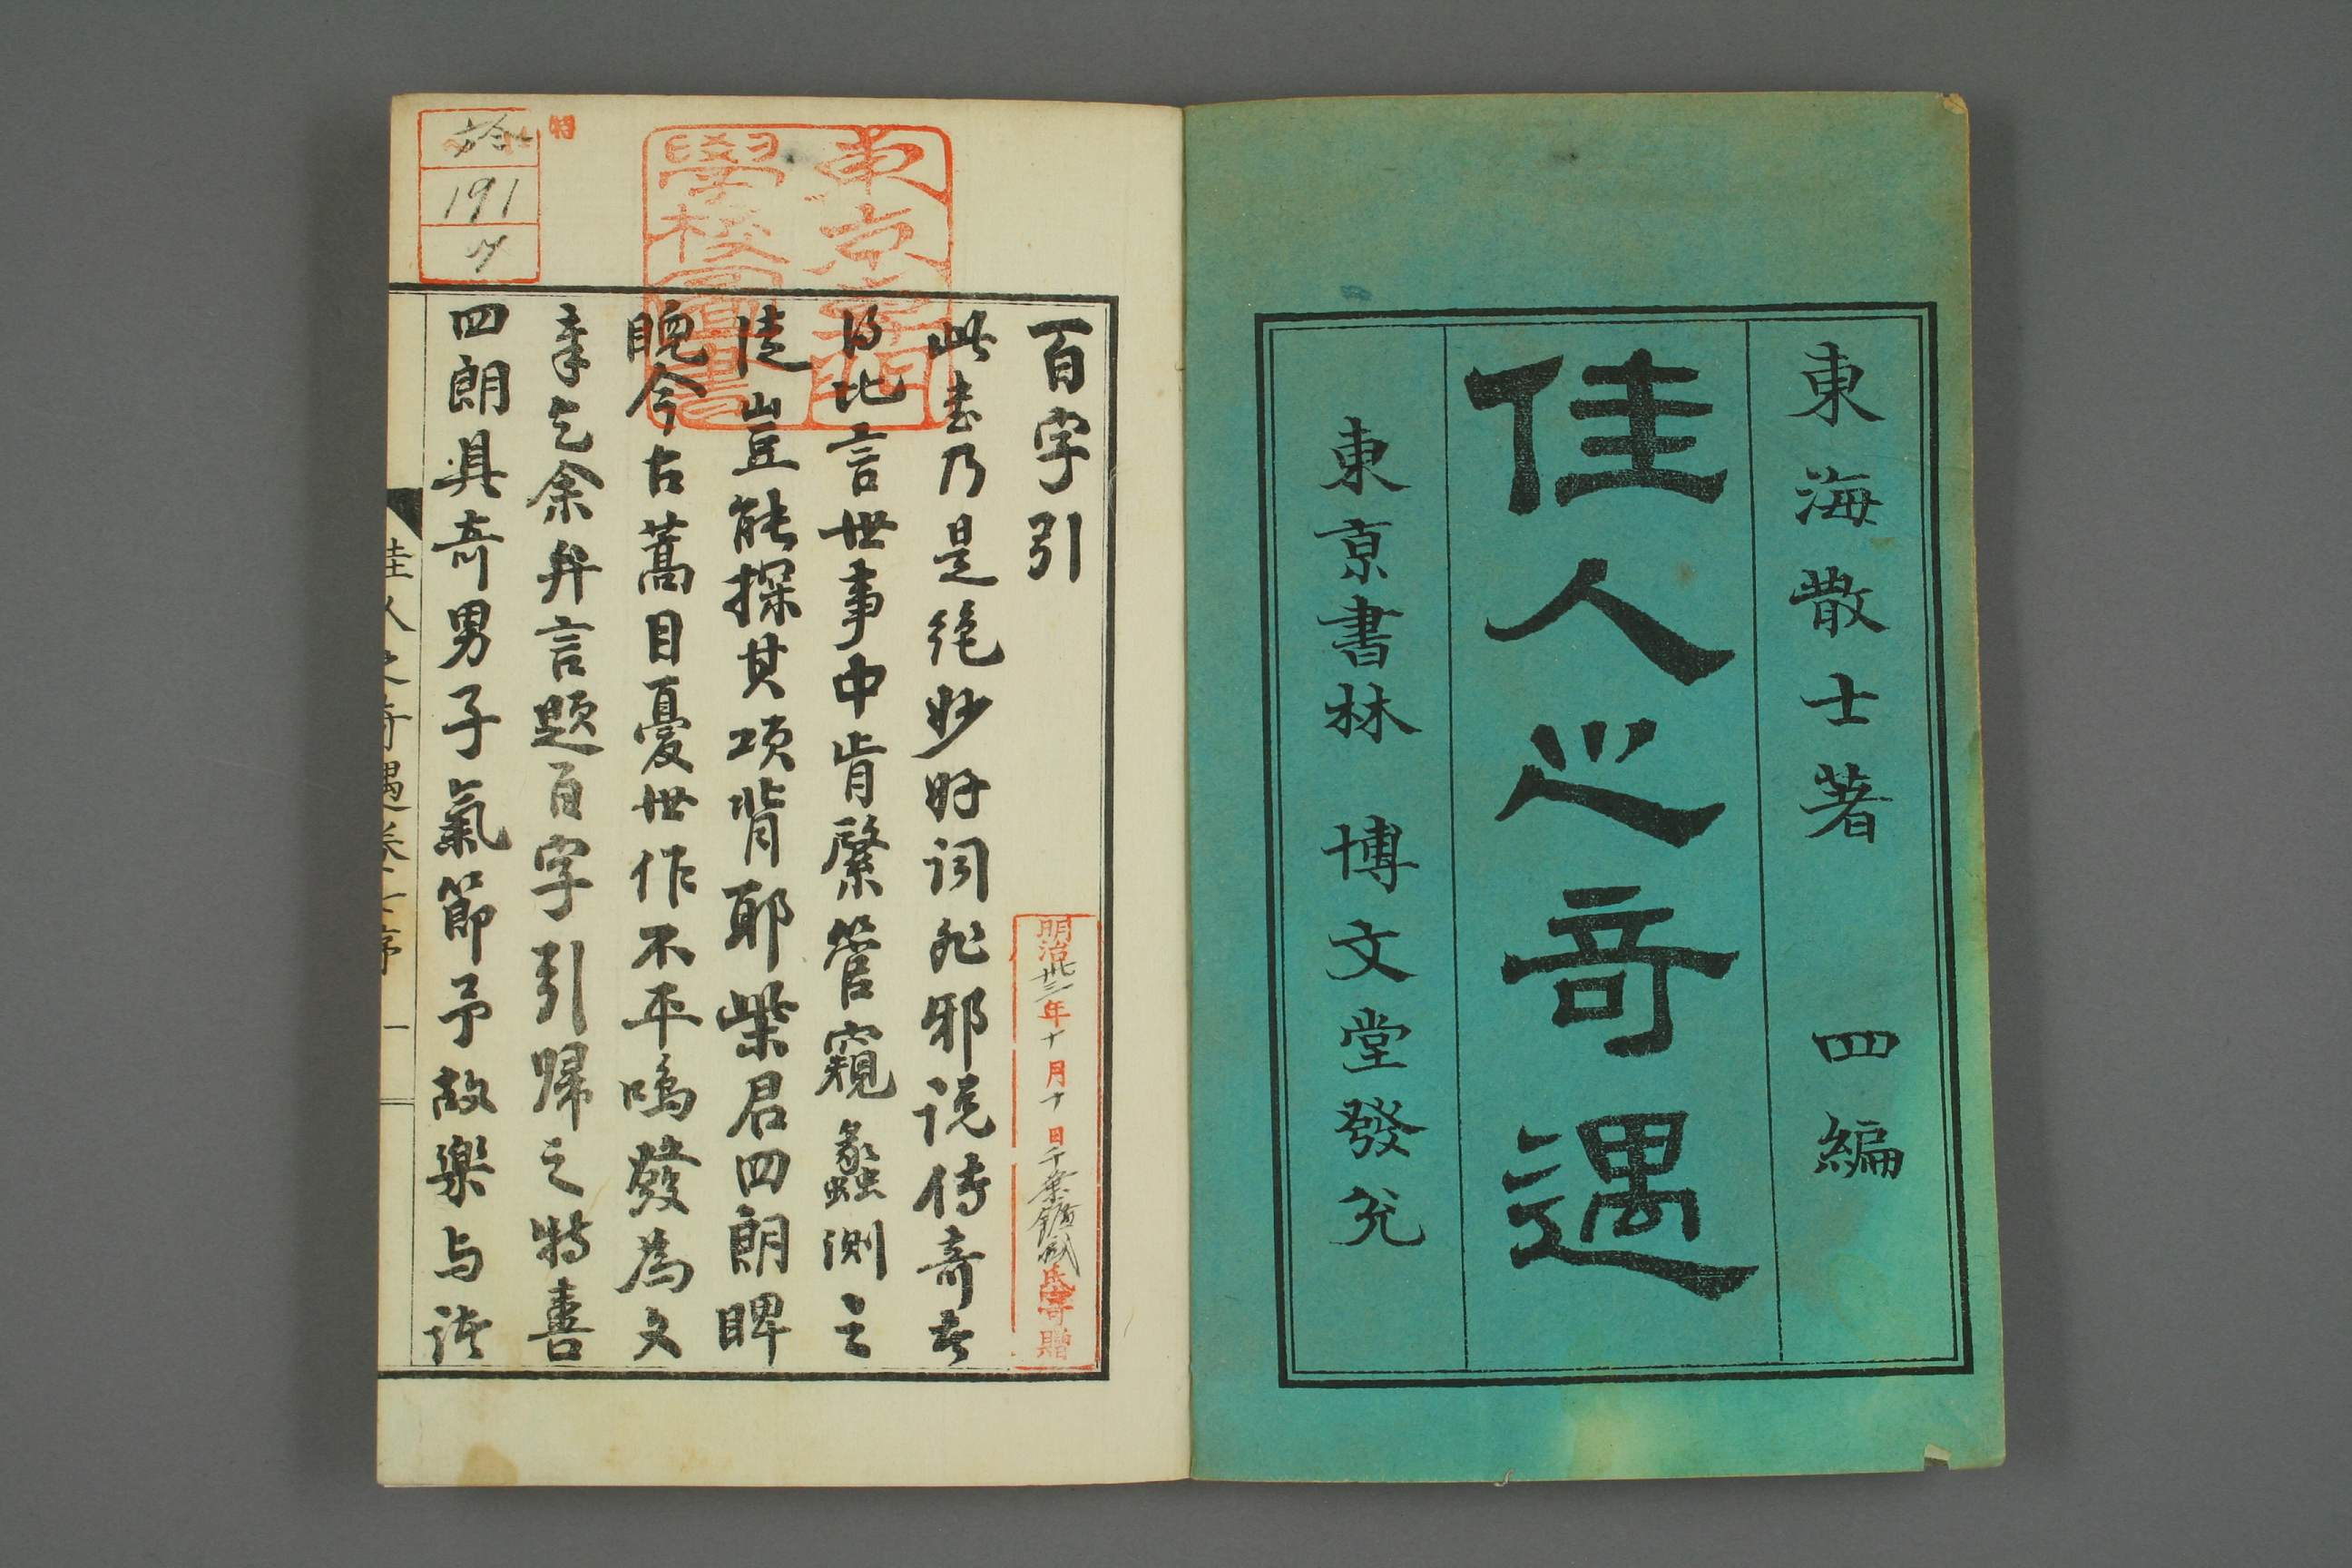 東海散士著 四編
佳人之奇遇
東京書林 博文堂發兌
百字引
此書乃是絶妙好詞非邪説傳奇者
以比言世事中肯綮管窺蠡測之
徒豈能探其項背耶柴君四朗睥
睨今古蒿目憂世作不平鳴發為文
章乞余弁言題百字引歸之特喜
四朗具奇男子氣節予故樂与談
佳人之奇遇卷 序 一
東京專門
學校圖書
明治卅三年十月十日
氏寄贈
特
191